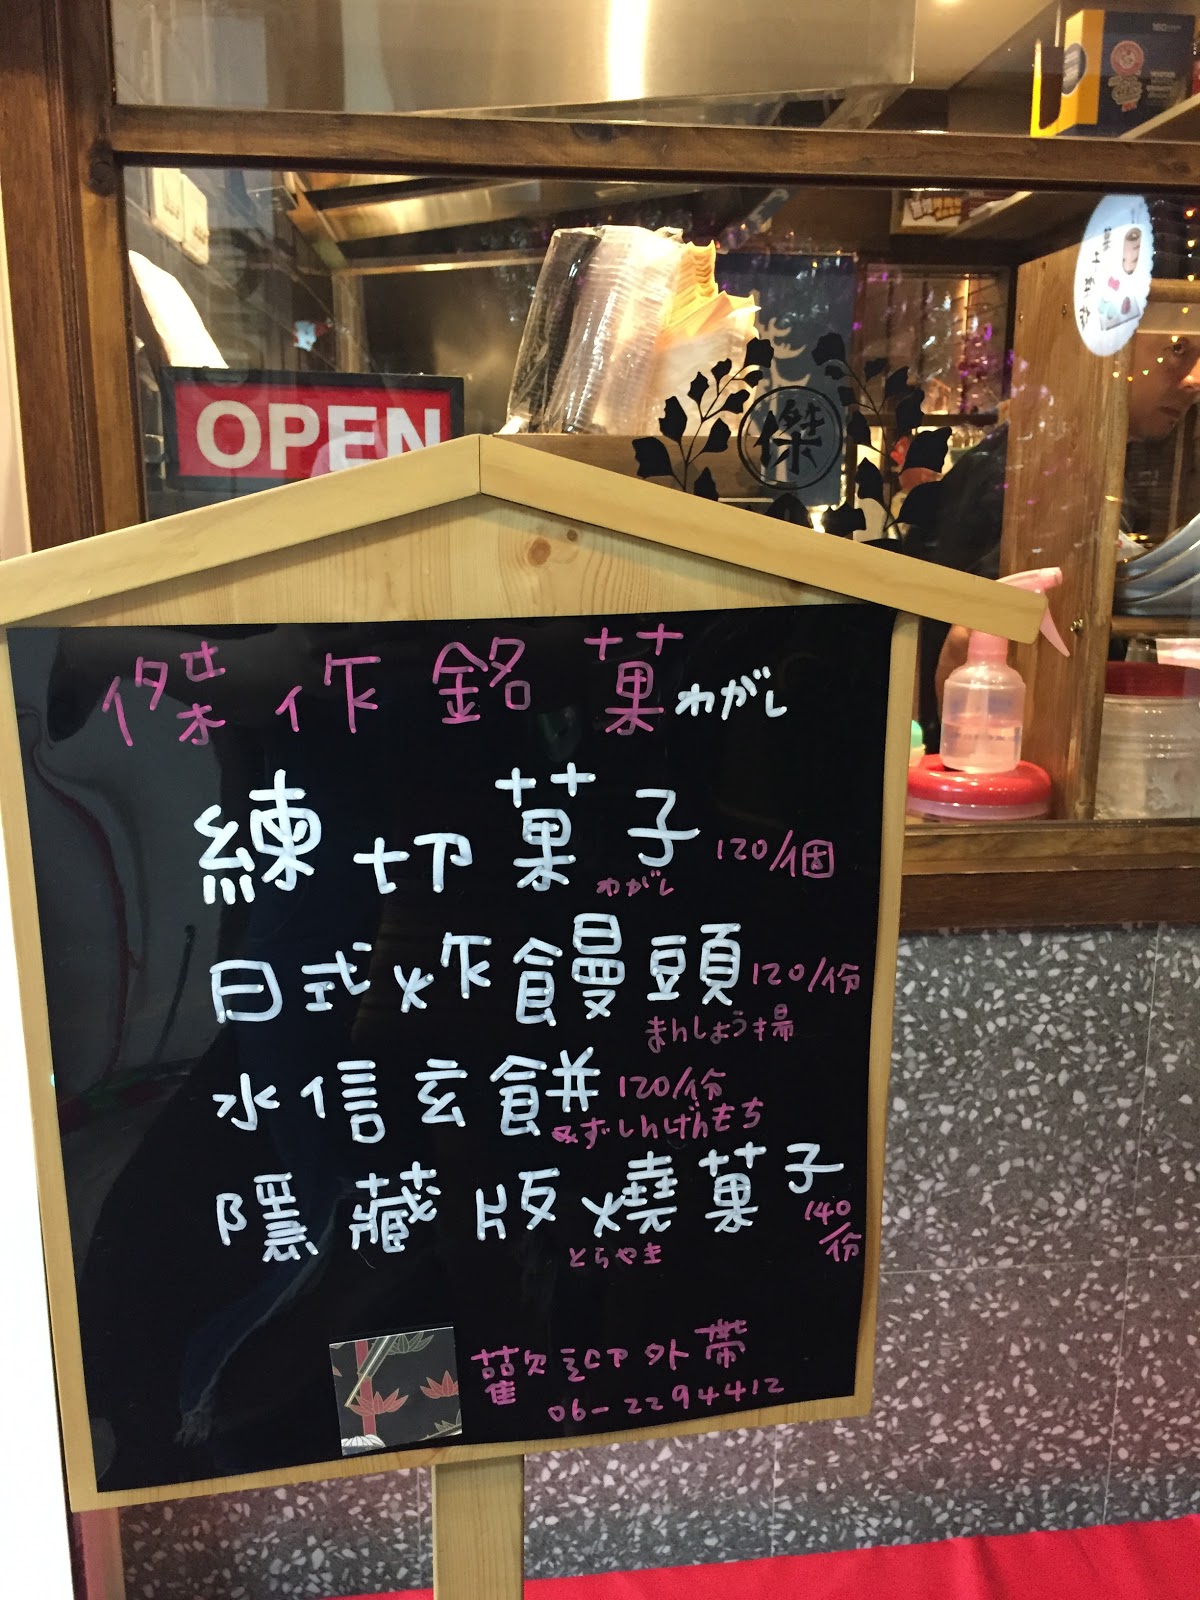 OPEN
傑
傑作銘菓わがし
練切菓子 120/個
わがし
日式炸饅頭 120/份
まんしょう揚
水信玄餅 120/份
みずしんげんもち
隱藏版燒菓子 140/份
とらやき
歡記外帶
06-2294412